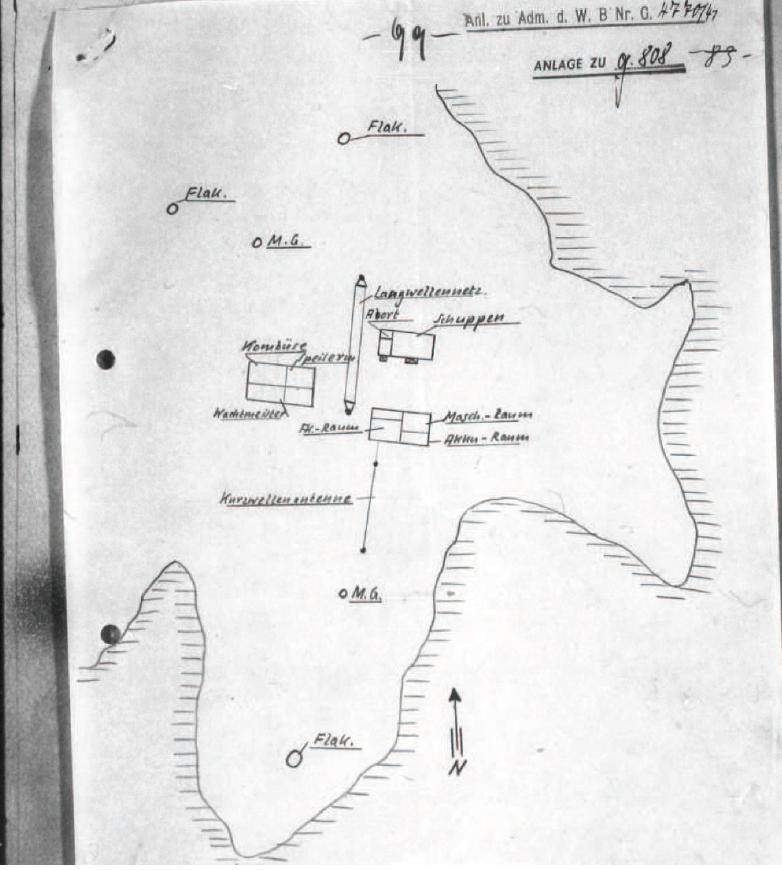 Anl. zu Adm. d. W. B Nr. G. 4770/41
- 99 -
ANLAGE ZU g. 808 - 85 -
Flak.
Flak.
M.G.
Langwellennetz.
Abort
Schuppen
Kombüse
Speiserm
Wachtmeister
Masch.-Raum
FK.-Raum
Akku-Raum
Kurzwellenantenne
M.G.
Flak.
N